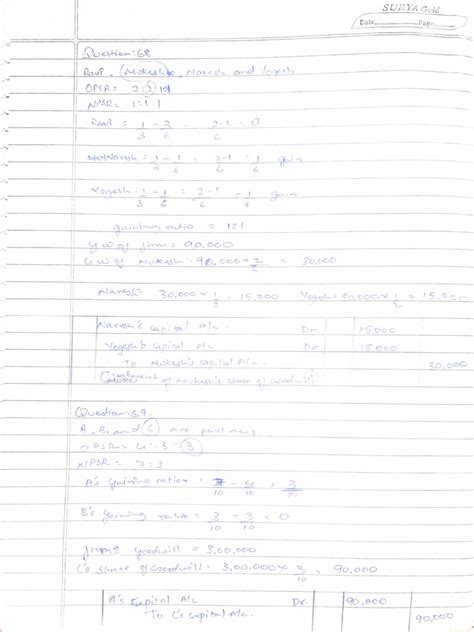 SURYA Gold
Date Page
Question:68
Ravi, Mukesh, Naresh and Yogesh
OPSR = 2:2:1:1
NPSR = 1:1:1
Ravi = 1/3 - 2/6 = 2-2/6 = 0
Naresh = 1/3 - 1/6 = 2-1/6 = 1/6 gain
Yogesh = 1/3 - 1/6 = 2-1/6 = 1/6 gain
gaining ratio = 1:1
G.w of firm = 90,000
G.w of Mukesh = 90,000 × 2/ = 30,000
Naresh = 30,000 × 1/2 = 15,000 Yogesh = 30,000 × 1/2 = 15,000
Naresh's Capital A/c Dr 15,000
Yogesh's Capital A/c Dr 15,000
To Mukesh's Capital A/c 30,000
of Mukesh's share of Goodwill)
Question:69.
A, B and C are partners
OPSR = 4:3:3
NPSR = 7:3
A's gaining ratio = 7/10 - 4/10 = 3/10
B's gaining ratio = 3/10 - 3/10 = 0
firm's Goodwill = 3,00,000
C's share of Goodwill = 3,00,000 × 3/10 = 90,000
A's Capital A/c Dr. 90,000
To C's Capital A/c. 90,000